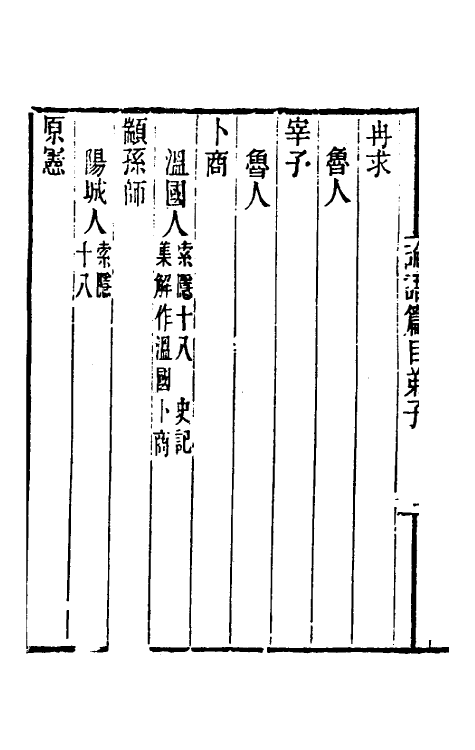 論語篇目弟子
冉求
魯人
宰予
魯人
卜商
溫國人索隱十八 史記集解作溫國卜商
顓孫師
陽城人索隱十八
原憲